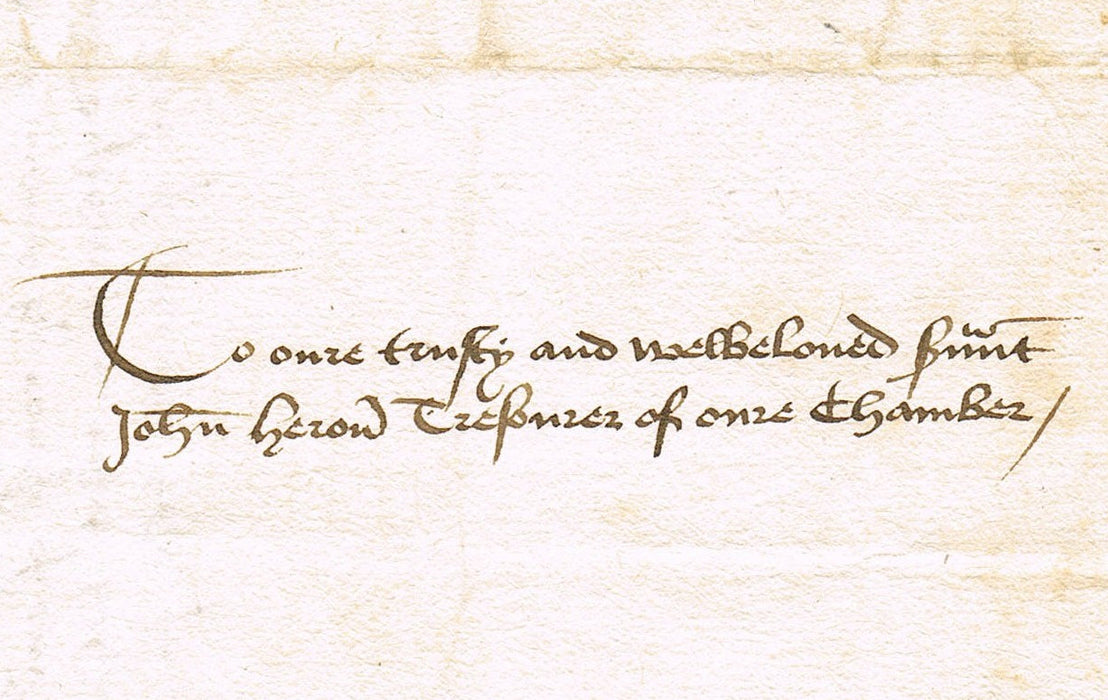 To oure trusty and welbeloued s'uūt
John heron Tresourer of oure Chamber /